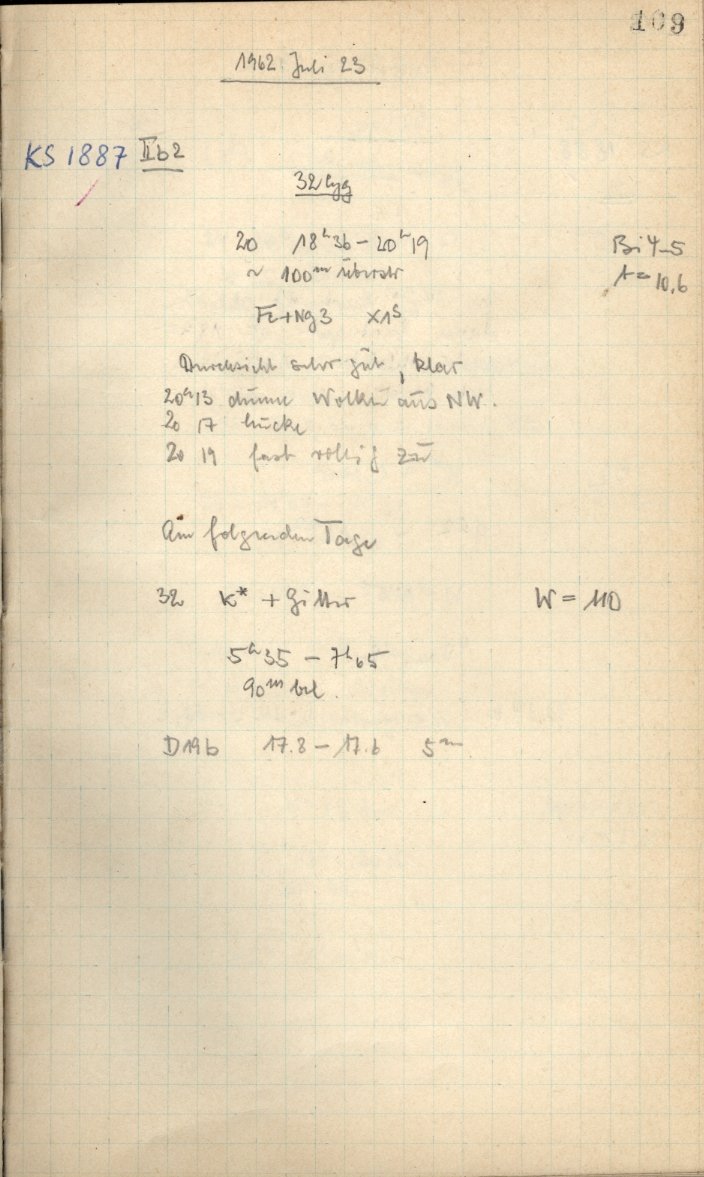 109
1962 Juli 23
KS 1887 IIb2
32 Cyg
20 18ʰ36 – 20ʰ19 Bi 4–5
~ 100ᵐ überstr t = 10,6
Fe+Ng3 x1ˢ
Durchsicht sehr gut, klar
20ʰ13 dünne Wolken aus NW.
20 17 Lücke
20 19 fast völlig zu
Am folgenden Tage
32 K* + Gitter W = 110
5ʰ35 – 7ʰ05
90ᵐ bel.
D19b 17.8 – 17.6 5ᵐ